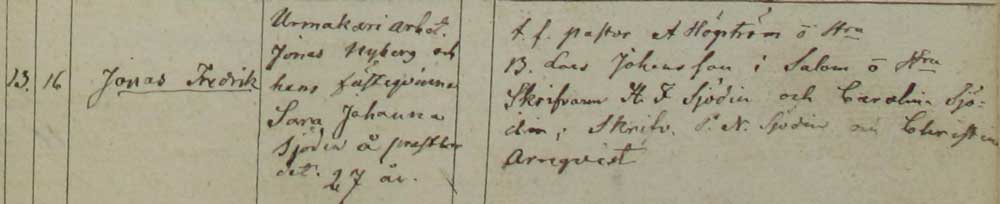 13. 16 Jonas Fredrik
Urmakeri arbet.
Jonas Nyberg och
hans fästeqvinna
Sara Johanna
Sjödin å prestbor
det. 27 år.
t. f. pastor A Högström o Hru
B. Lars Johansson i Salom o Hru
Skrifvaren H. F. Sjödin och Carolina Sjö-
din; Skrifv. P. N. Sjödin Christina
Arnqvist